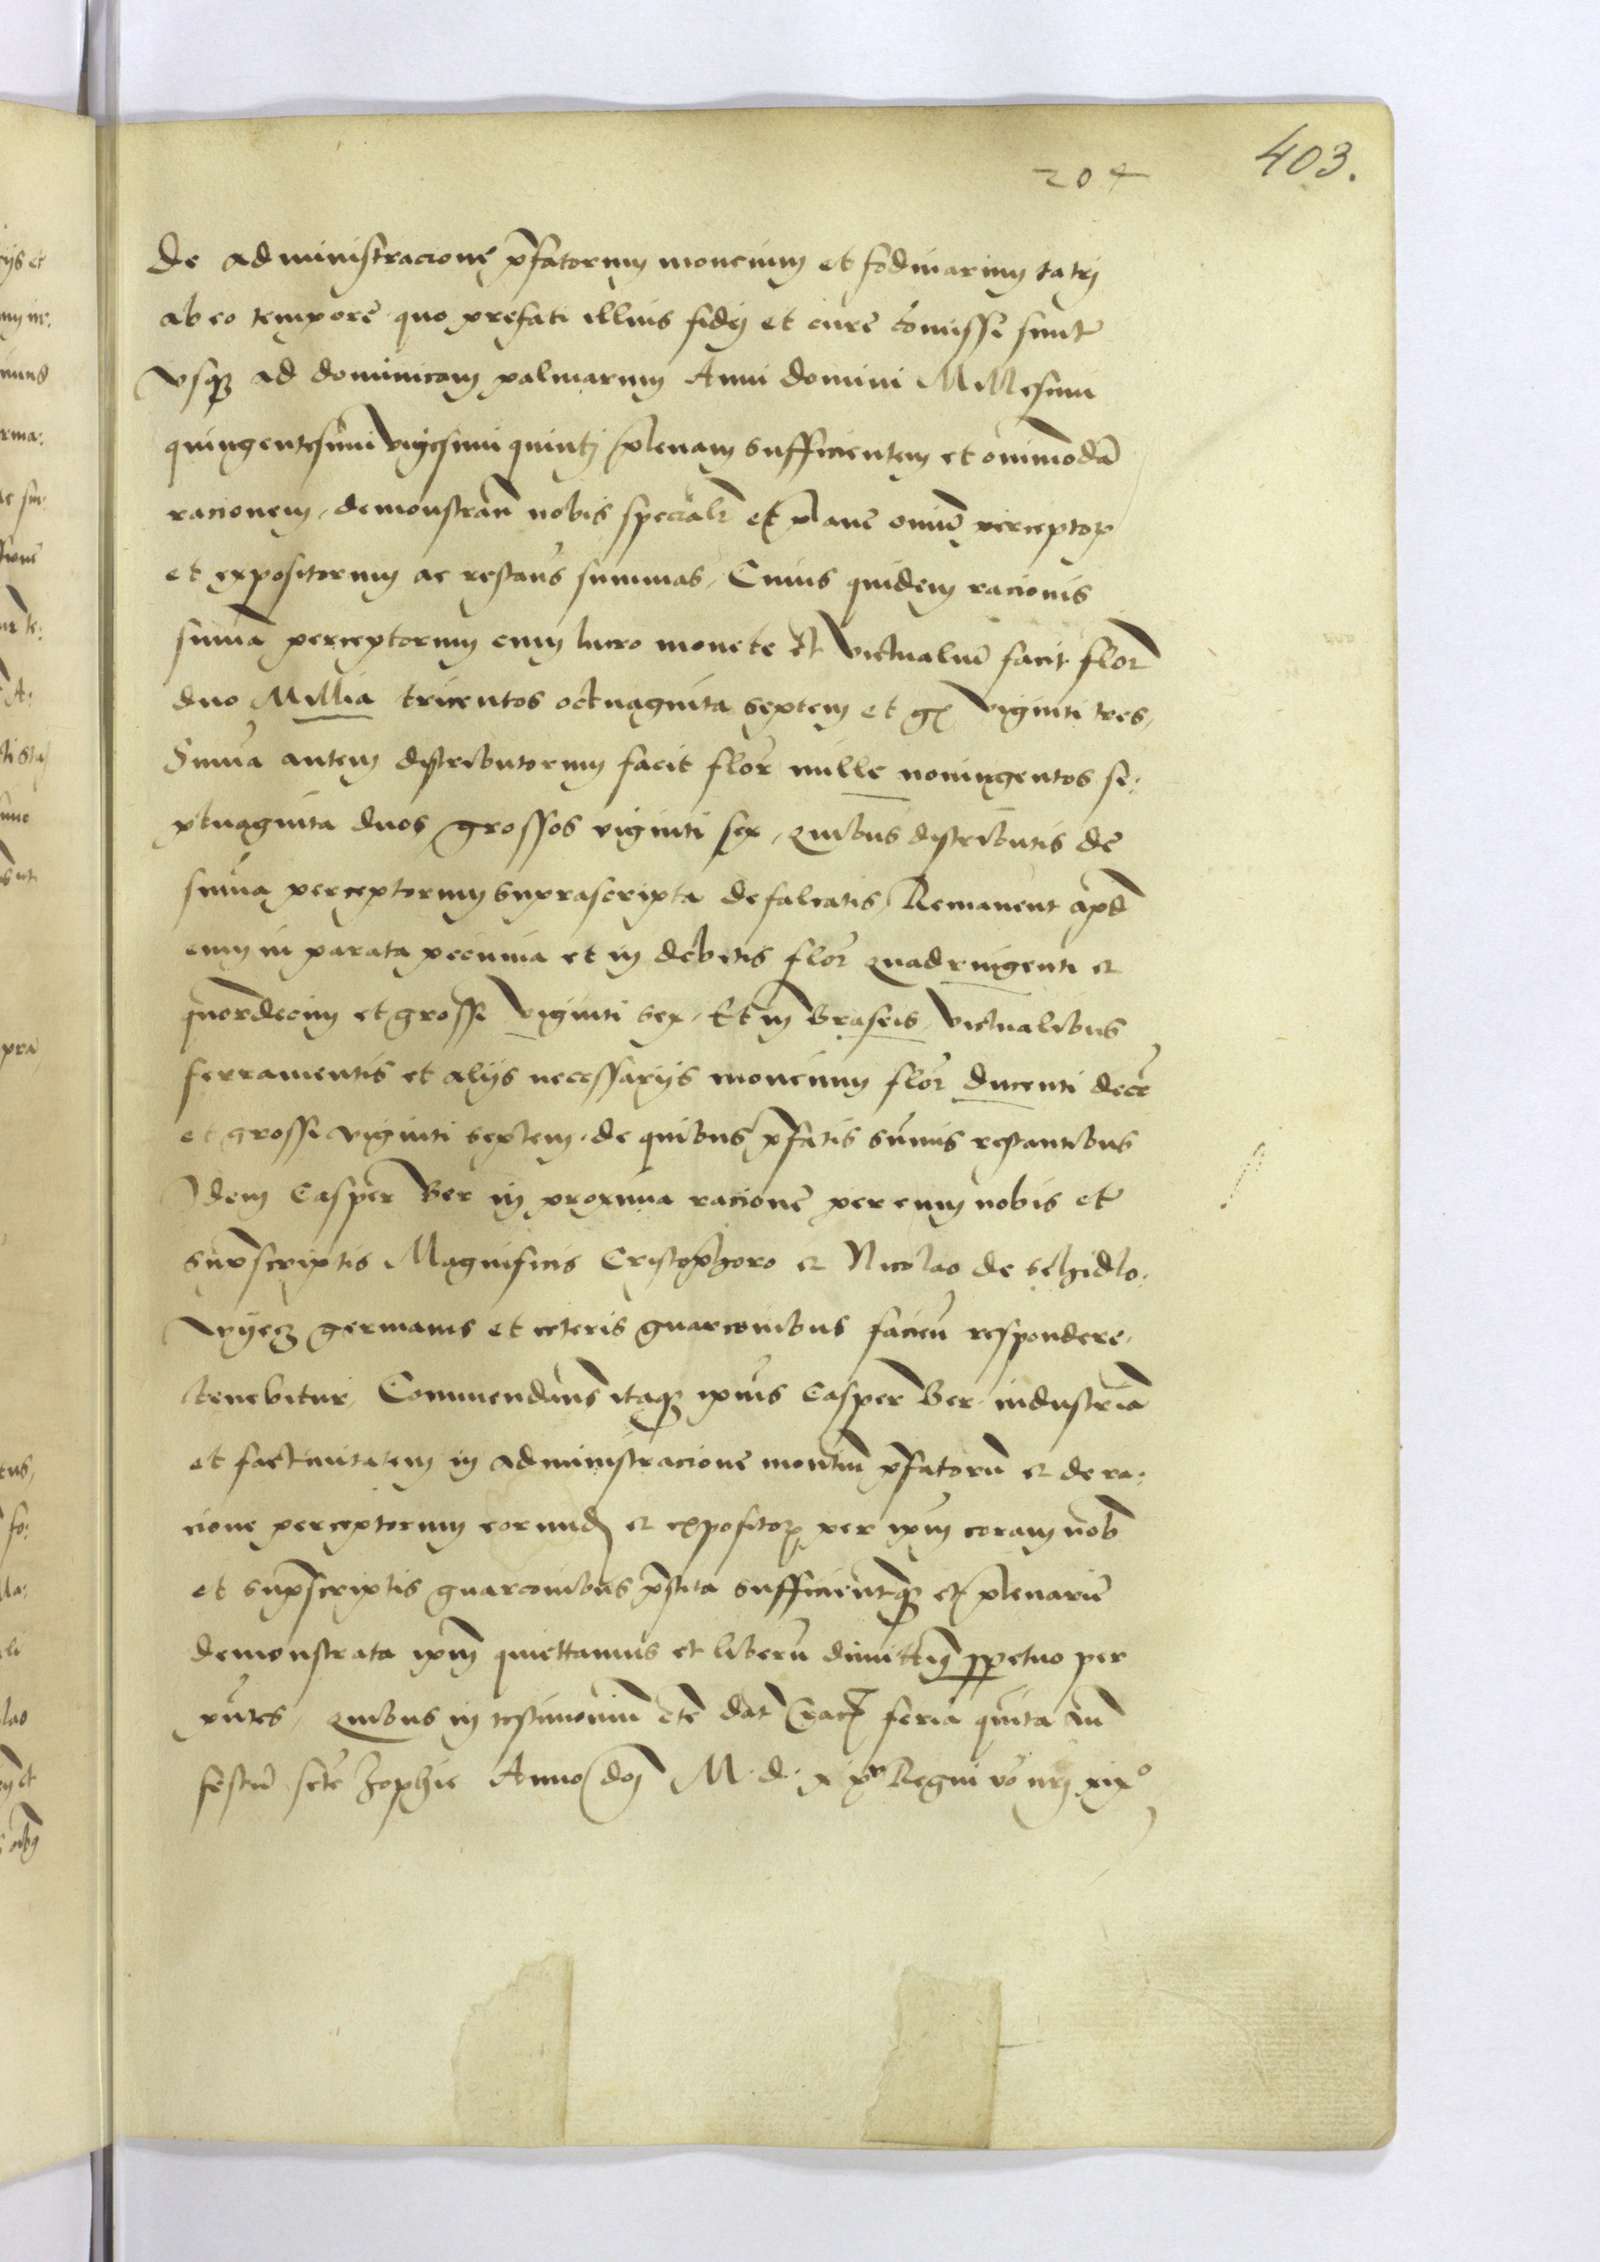 403.
204
de administracione p̄fatorum moncium et fodinarum tatrj
ab eo tempore quo prefati illius fidej et cure cōmissi sunt
vsq3 ad dominicam palmarum Anni domini Millesimi
quingentesimi vigesimi quintj plenam sufficientem et omnimodā
racionem, demonstran̄ nobis specialr̄ et plane omiū perceptoꝝ
et expositorum ac restan̄s summas, Cuius quidem racionis
summa perceptorum cum lucro monete et victualiū facit florͫ
duo Millia tricentos octuaginta septem et gͬ viginti tres,
Summa autem distributorum facit florͫ mille noningentos se:
ptuaginta duos grossos viginti sex, quibus distributis de
summa perceptorum suprascripta defalcatis, Remanent apd
eum in parata pecunia et in debitis flor quadringenti et
quordecim et grossi viginti sex, Et in braseis, victualibus
ferramentis et alijs necessarijs moncium flor ducenti decē
et grossi viginti septem, de quibus p̄fatis summis restantibus
Idem Casper Ber in proxima racione per eum nobis et
sup̄scriptis Magnificis Cristophoro et Nicolao de schidlo:
vyecz germanis et ceteris guarconibus facien̄ respondere,
tenebitur, Commendan̄s itaq3 ipius Casper Ber industriā
et factiuitatem in administracione montiū p̄fatorū et de ra:
cione perceptorum eorund et expositoꝝ per ipm̄ coram nob̄
et sup̄scriptis guarconibus p̄stita sufficientq3 et plenarie
demonstrata ipm̄ quiettamus et liberū dimittim̄ ꝑpetuo per
pn̄tes, quibus in testimoniū etc dat̄ Crac̄ feria quīta an̄
festū scte Zophie Anno dnj M. d. x xv Regni vo nrj xixo